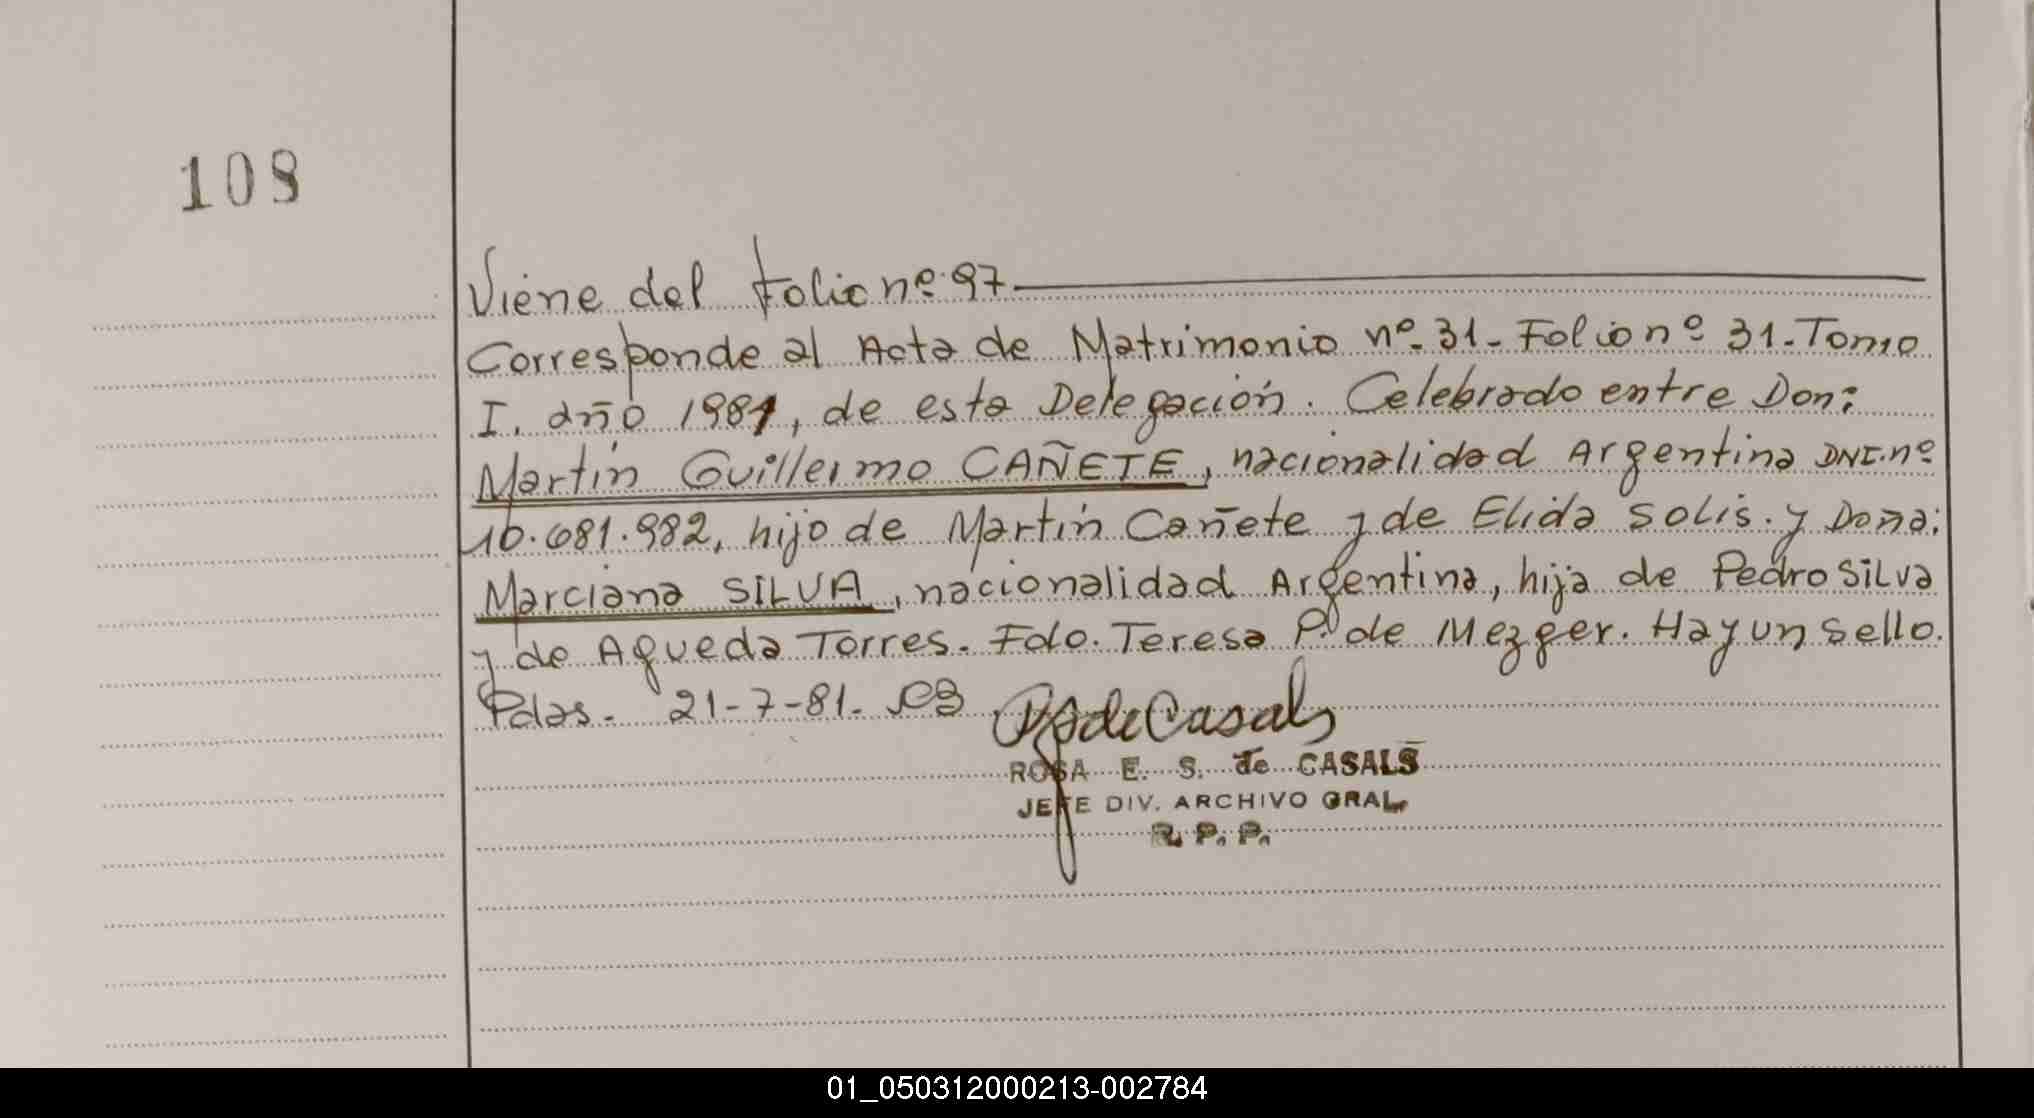 108
Viene del folio nº 97
Corresponde al Acta de Matrimonio nº 31 - Folio nº 31 - Tomo
I. año 1981, de esta Delegación. Celebrado entre Don:
Martín Guillermo CAÑETE, nacionalidad Argentina DNI. nº
10.681.982, hijo de Martín Cañete y de Elida Solis. y Doña:
Marciana SILVA, nacionalidad Argentina, hija de Pedro Silva
y de Aqueda Torres. Fdo. Teresa P. de Mezger. Hay un sello.
Pdas. 21-7-81.
de Casals
ROSA E. S. de CASALS
JEFE DIV. ARCHIVO GRAL.
R. P. P.
01_050312000213-002784